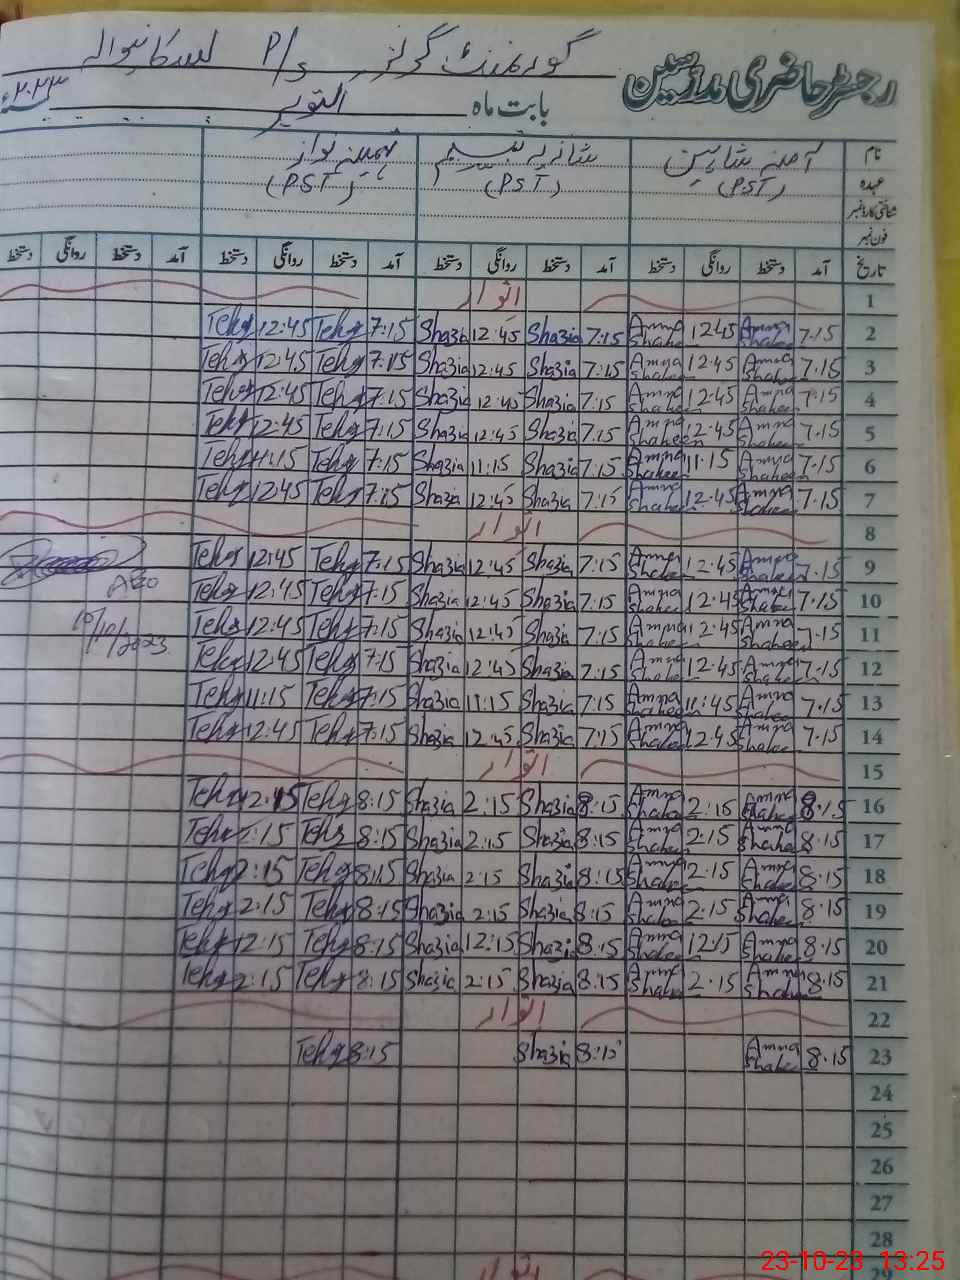 رجسٹر حاضری مدرسین گورنمنٹ گرلز P/s
بابت ماہ اکتوبر ۲۰۲۳ء
نام آمنہ شاہین شازیہ تبسم تہمینہ نواز
عہدہ (PST) (PST) (PST)
شناختی کارڈ نمبر
فون نمبر
تاریخ آمد دستخط روانگی دستخط آمد دستخط روانگی دستخط آمد دستخط روانگی دستخط آمد دستخط روانگی دستخط
1 اتوار
2 7:15 Amna Shaheen 12:45 Amna Shaheen 7:15 Shazia 12:45 Shazia 7:15 12:45
3 7:15 Amna Shaheen 12:45 Amna Shaheen 7:15 Shazia 12:45 Shazia 7:15 12:45
4 7:15 Amna Shaheen 12:45 Amna Shaheen 7:15 Shazia 12:45 Shazia 7:15 12:45
5 7:15 Amna Shaheen 12:45 Amna Shaheen 7:15 Shazia 12:45 Shazia 7:15 12:45
6 7:15 Amna Shaheen 11:15 Amna Shaheen 7:15 Shazia 11:15 Shazia 7:15 11:15
7 7:15 Amna Shaheen 12:45 Amna Shaheen 7:15 Shazia 12:45 Shazia 7:15 12:45
8 اتوار
9 7:15 Amna Shaheen 12:45 Amna Shaheen 7:15 Shazia 12:45 Shazia 7:15 12:45
10 7:15 Amna Shaheen 12:45 Amna Shaheen 7:15 Shazia 12:45 Shazia 7:15 12:45 AEO
11 7:15 Amna Shaheen 12:45 Amna Shaheen 7:15 Shazia 12:45 Shazia 7:15 12:45 10/10/2023
12 7:15 Amna Shaheen 12:45 Amna Shaheen 7:15 Shazia 12:45 Shazia 7:15 12:45
13 7:15 Amna Shaheen 11:45 Amna Shaheen 7:15 Shazia 11:15 Shazia 7:15 11:15
14 7:15 Amna Shaheen 12:45 Amna Shaheen 7:15 Shazia 12:45 Shazia 7:15 12:45
15 اتوار
16 8:15 Amna Shaheen 2:15 Amna Shaheen 8:15 Shazia 2:15 Shazia 8:15 2:15
17 8:15 Amna Shaheen 2:15 Amna Shaheen 8:15 Shazia 2:15 Shazia 8:15 2:15
18 8:15 Amna Shaheen 2:15 Amna Shaheen 8:15 Shazia 2:15 Shazia 8:15 2:15
19 8:15 Amna Shaheen 2:15 Amna Shaheen 8:15 Shazia 2:15 Shazia 8:15 2:15
20 8:15 Amna Shaheen 12:15 Amna Shaheen 8:15 Shazia 12:15 Shazia 8:15 12:15
21 8:15 Amna Shaheen 2:15 Amna Shaheen 8:15 Shazia 2:15 Shazia 8:15 2:15
22 اتوار
23 8:15 Amna Shaheen 8:15 Shazia 8:15
24
25
26
27
28
29 اتوار
23-10-23 13:25